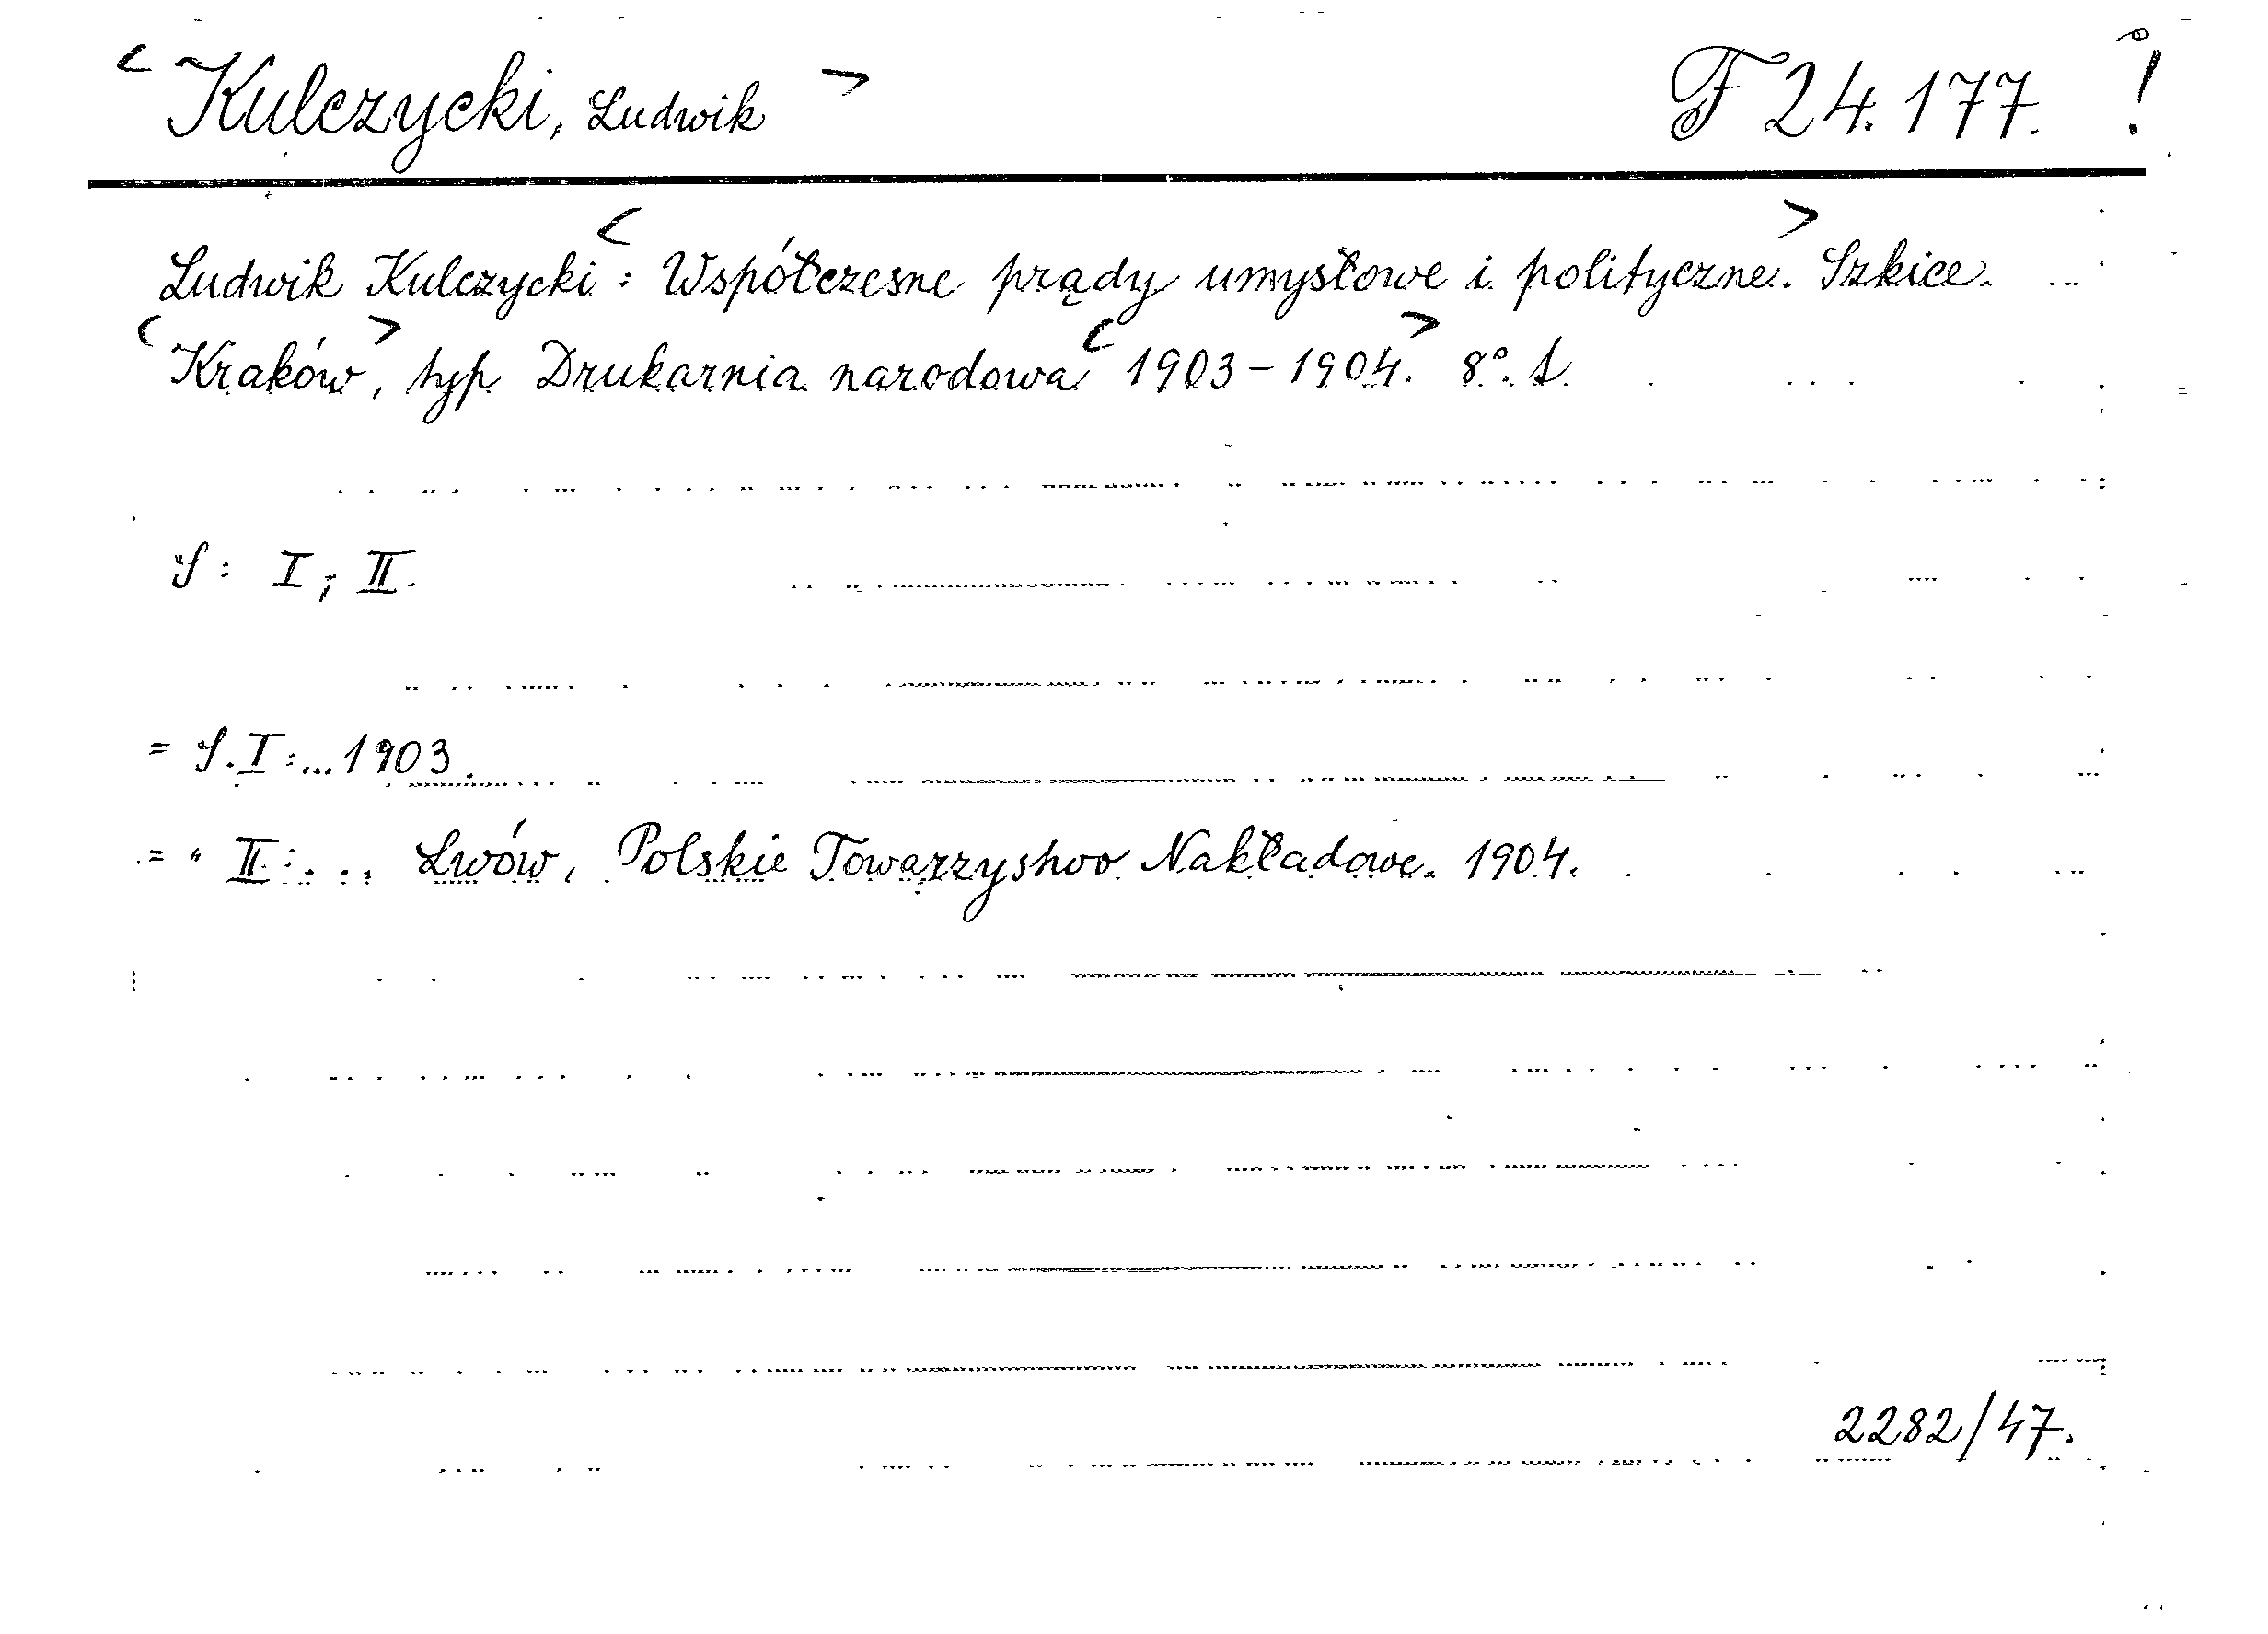 < Kulczycki, Ludwik > F 24.177. !
Ludwik Kulczycki : < Współczesne prądy umysłowe i polityczne. > Szkice.
< Kraków >, typ Drukarnia narodowa < 1903-1904. > 8°.
: I; II.
= I:... 1903.
= " II:... Lwów, Polskie Towarzystwo Nakładowe. 1904.
2282/47.